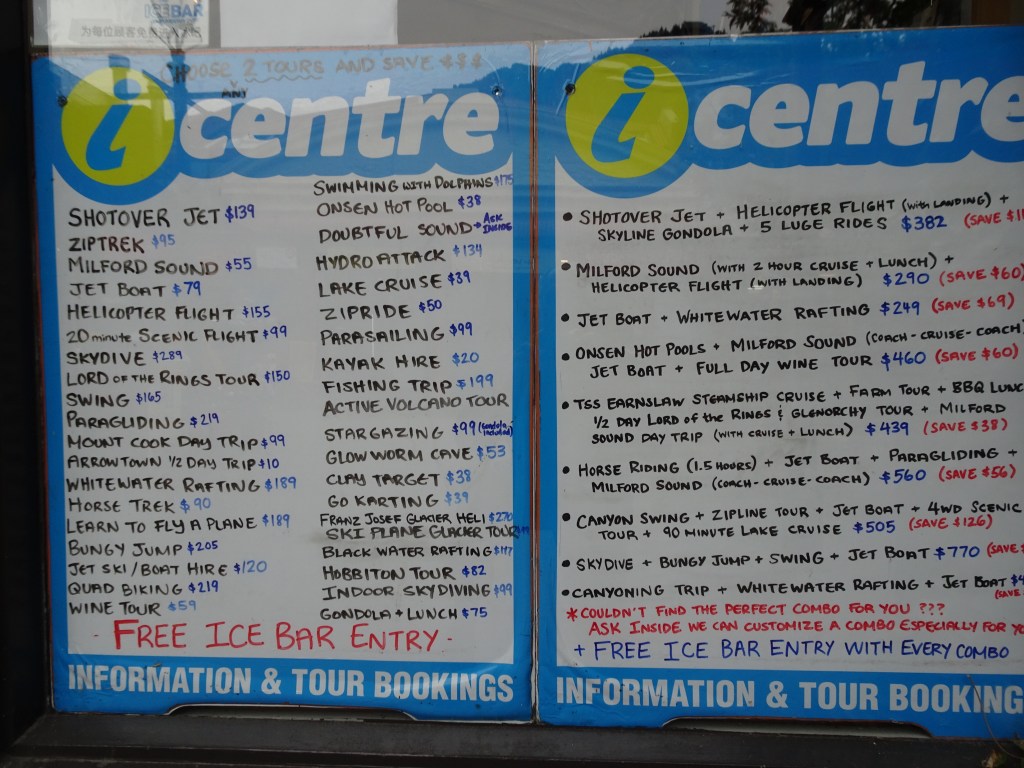 ICEBAR
CHOOSE ANY 2 TOURS AND SAVE $$$
i centre
SHOTOVER JET $139
ZIPTREK $95
MILFORD SOUND $55
JET BOAT $79
HELICOPTER FLIGHT $155
20 minute SCENIC FLIGHT $99
SKYDIVE $289
LORD OF THE RINGS TOUR $150
SWING $165
PARAGLIDING $219
MOUNT COOK DAY TRIP $99
ARROWTOWN 1/2 DAY TRIP $10
WHITEWATER RAFTING $189
HORSE TREK $90
LEARN TO FLY A PLANE $189
BUNGY JUMP $205
JET SKI/BOAT HIRE $120
QUAD BIKING $219
WINE TOUR $59
SWIMMING WITH DOLPHINS $175
ONSEN HOT POOL $38
DOUBTFUL SOUND → ASK INSIDE
HYDRO ATTACK $134
LAKE CRUISE $39
ZIPRIDE $50
PARASAILING $99
KAYAK HIRE $20
FISHING TRIP $199
ACTIVE VOLCANO TOUR
STARGAZING $99 (Gondola included)
GLOW WORM CAVE $53
CLAY TARGET $38
GO KARTING $39
FRANZ JOSEF GLACIER HELI $270
SKI PLANE GLACIER TOUR
BLACK WATER RAFTING $117
HOBBITON TOUR $82
INDOOR SKYDIVING $99
GONDOLA + LUNCH $75
- FREE ICE BAR ENTRY -
INFORMATION & TOUR BOOKINGS
i centre
• SHOTOVER JET + HELICOPTER FLIGHT (with LANDING) +
SKYLINE GONDOLA + 5 LUGE RIDES $382 (SAVE
• MILFORD SOUND (WITH 2 HOUR CRUISE + LUNCH) +
HELICOPTER FLIGHT (WITH LANDING) $290 (SAVE $60)
• JET BOAT + WHITEWATER RAFTING $249 (SAVE $69)
• ONSEN HOT POOLS + MILFORD SOUND (COACH-CRUISE-COACH)
JET BOAT + FULL DAY WINE TOUR $460 (SAVE $60)
• TSS EARNSLAW STEAMSHIP CRUISE + FARM TOUR + BBQ LUNC
1/2 DAY LORD OF THE RINGS & GLENORCHY TOUR + MILFORD
SOUND DAY TRIP (WITH CRUISE + LUNCH) $439 (SAVE $38)
• HORSE RIDING (1.5 HOURS) + JET BOAT + PARAGLIDING +
MILFORD SOUND (COACH-CRUISE-COACH) $560 (SAVE $56)
• CANYON SWING + ZIPLINE TOUR + JET BOAT + 4WD SCENIC
TOUR + 90 MINUTE LAKE CRUISE $505 (SAVE $126)
• SKYDIVE + BUNGY JUMP + SWING + JET BOAT $770 (SAVE
• CANYONING TRIP + WHITEWATER RAFTING + JET BOAT $4
(SAVE
* COULDN'T FIND THE PERFECT COMBO FOR YOU ???
ASK INSIDE WE CAN CUSTOMIZE A COMBO ESPECIALLY FOR YO
+ FREE ICE BAR ENTRY WITH EVERY COMBO
INFORMATION & TOUR BOOKING